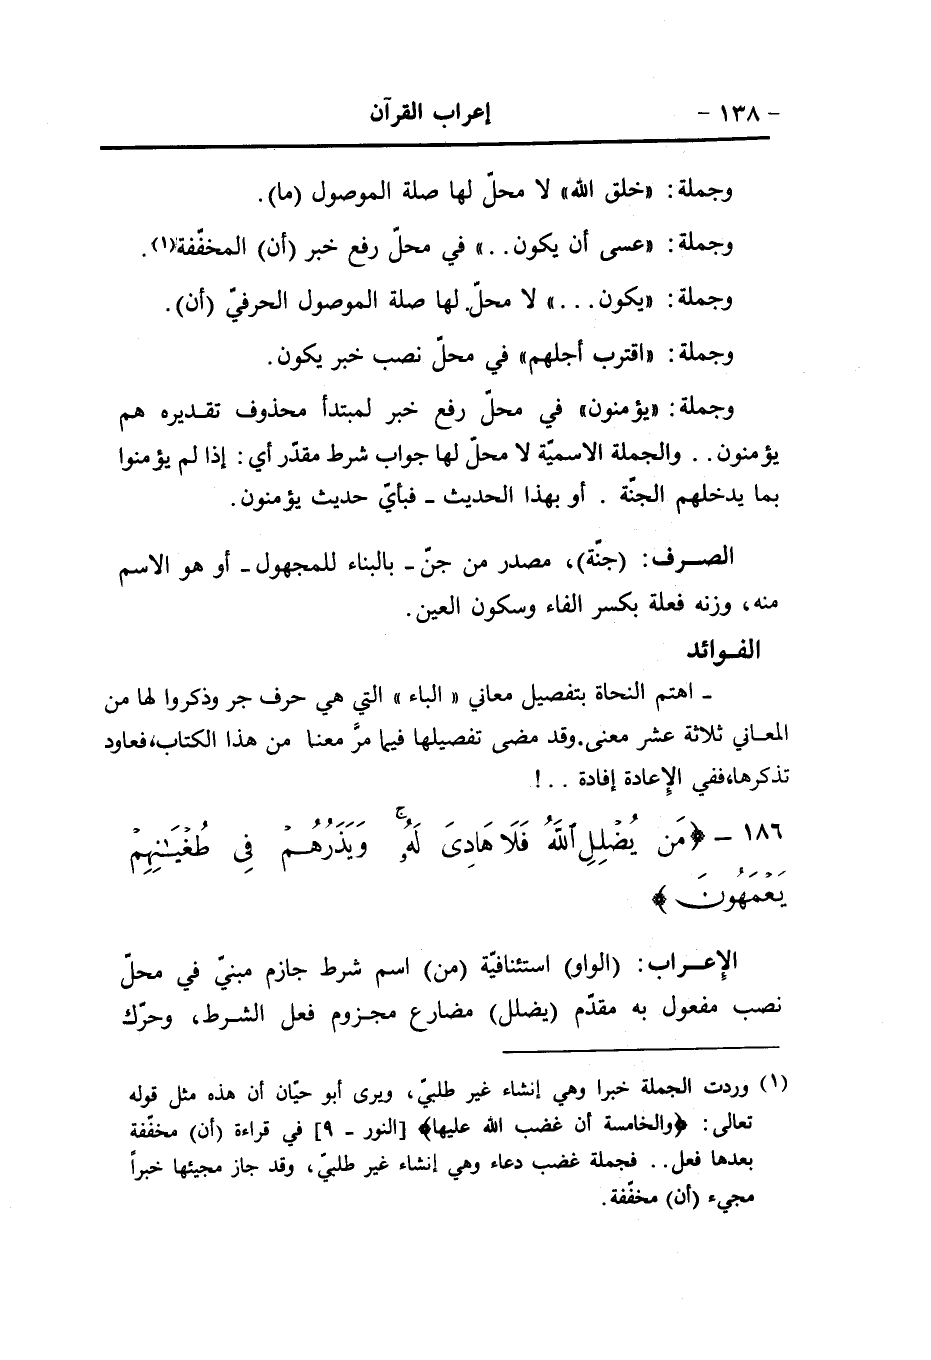 - ١٣٨ - إعراب القرآن
وجملة: «خلق الله» لا محلّ لها صلة الموصول (ما).
وجملة: «عسى أن يكون..» في محلّ رفع خبر (أن) المخفّفة(١).
وجملة: «يكون...» لا محلّ لها صلة الموصول الحرفيّ (أن).
وجملة: «اقترب أجلهم» في محلّ نصب خبر يكون.
وجملة: «يؤمنون» في محلّ رفع خبر لمبتدأ محذوف تقـديره هم
يؤمنون.. والجملة الاسميّة لا محلّ لها جواب شرط مقدّر أي: إذا لم يؤمنوا
بما يدخلهم الجنّة . أو بهذا الحديث ـ فبأيّ حديث يؤمنون.
الصــرف: (جنّة)، مصدر من جنّ ـ بالبناء للمجهول ـ أو هو الاسم
منه، وزنه فعلة بكسر الفاء وسكون العين.
الفـوائد
ـ اهتم النحاة بتفصيل معاني « الباء » التي هي حرف جر وذكروا لها من
المعـاني ثلاثة عشر معنى.وقد مضى تفصيلها فيما مرَّ معنـا من هذا الكتاب،فعاود
تذكرها،ففي الإعادة إفادة ..!
١٨٦ - ﴿مَن يُضْلِلِ ٱللَّهُ فَلَا هَادِىَ لَهُۥ ۚ وَيَذَرُهُـمْ فِى طُغْيَـٰنِهِمْ
يَعْمَهُونَ ﴾
الإعـراب: (الواو) استئنافيّة (من) اسم شرط جازم مبنيّ في محلّ
نصب مفعول به مقدّم (يضلل) مضارع مجـزوم فعل الشـرط، وحرّك
(١) وردت الجملة خبرا وهي إنشاء غير طلبيّ، ويرى أبو حيّان أن هذه مثل قوله
تعالى: ﴿والخامسة أن غضب الله عليها﴾ [النور - ٩] في قراءة (أن) مخفّفة
بعدها فعل.. فجملة غضب دعاء وهي إنشاء غير طلبيّ، وقد جاز مجيئها خبراً
مجيء (أن) مخفّفة.